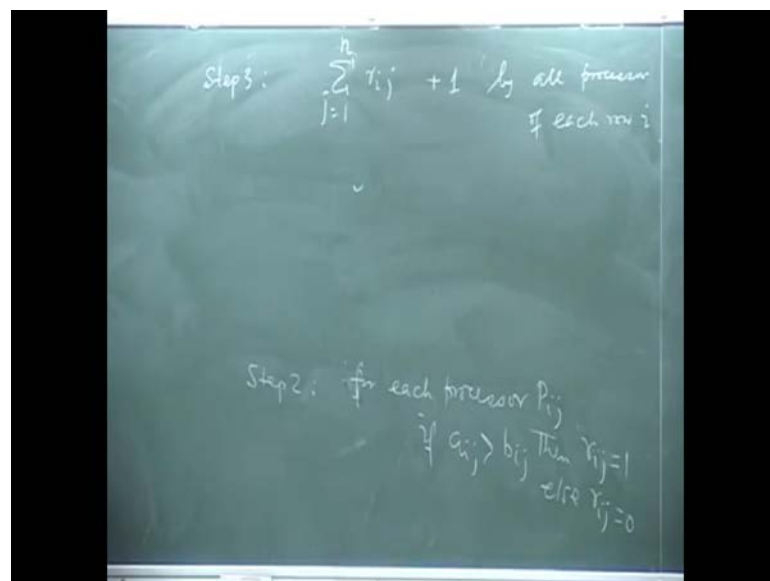 Step 3: n∑j=1 rij + 1 by all processor
of each row i
Step 2: for each processor Pij
if aij > bij Then rij=1
else rij=0